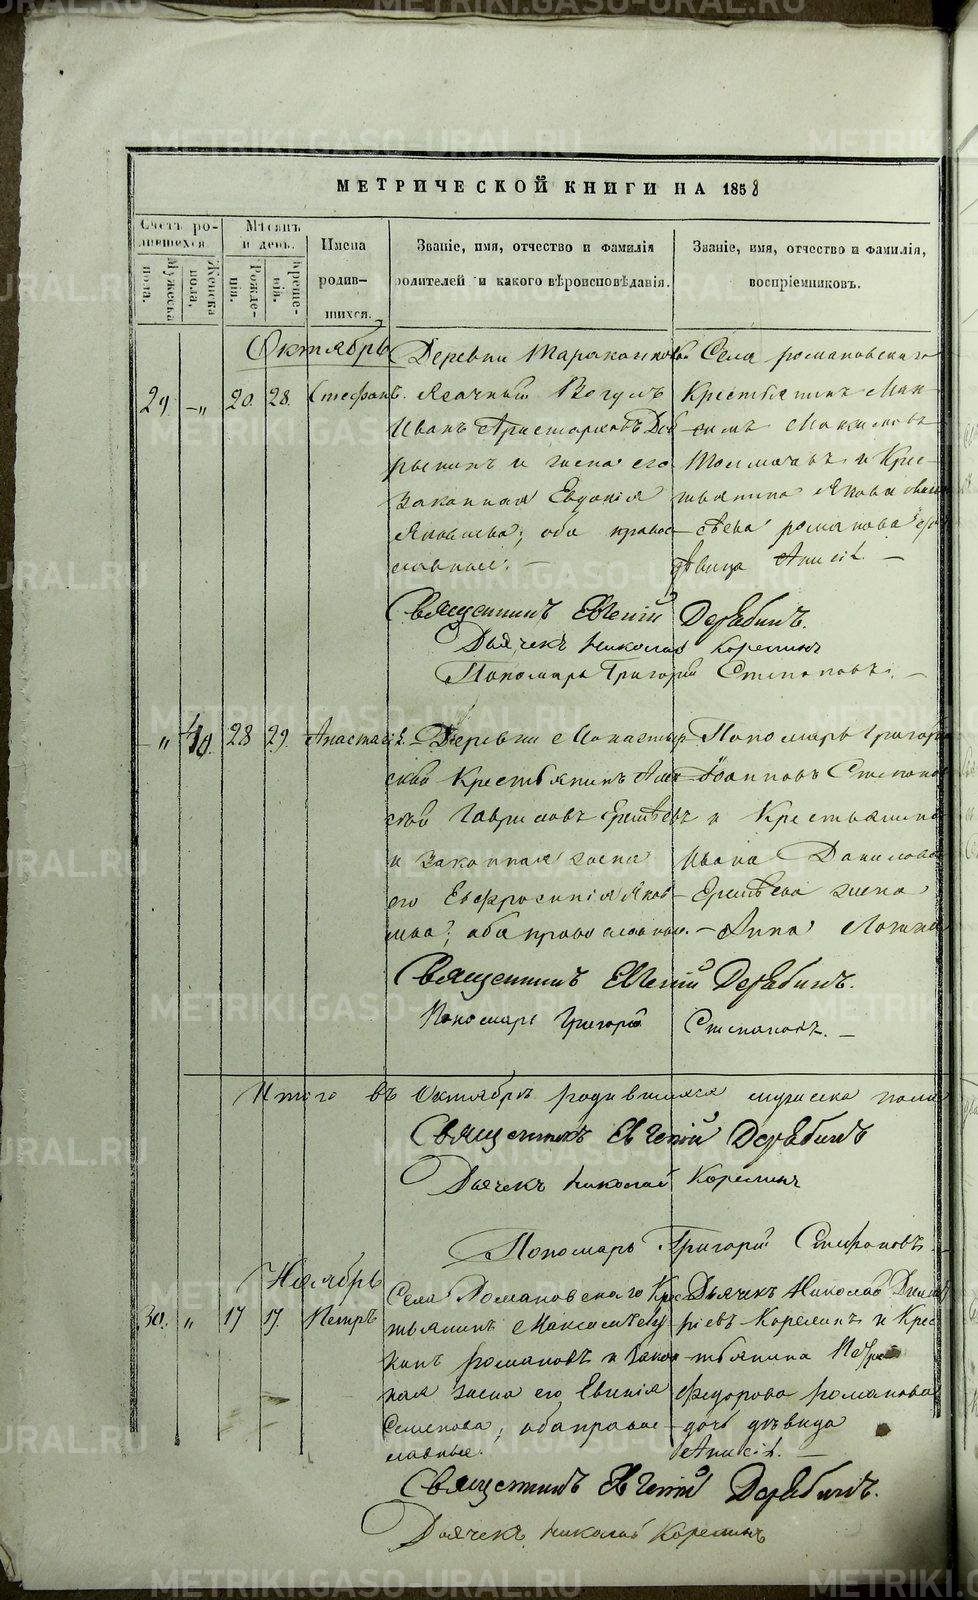 МЕТРИЧЕСКОЙ КНИГИ НА 1858
Счетъ ро-
дившихся.
Мужеска
пола.
Женска
пола.
Мѣсяцъ
и день.
Рожде-
нія.
Креще-
нія.
Имена
родив-
шихся.
Званіе, имя, отчество и фамилія
родителей и какого вѣроисповѣданія.
Званіе, имя, отчество и фамилія,
воспріемниковъ.
Октябрь
29 „ 20. 28. Стефанъ.
Деревни
Ясачный Вогулъ
Иванъ Аристарховъ Доб-
рынинъ и жена его
законная Евдокія
Яковлева; оба правос-
лавные.
Села романовскаго
Крестьянинъ Мак-
симъ Максимовъ
и Крес-
тьянина Якова
романова
дѣвица
Священникъ Евгеній Дерябинъ.
Дьячекъ Николай Корелинъ
Пономарь Григорій Степановъ.
„ 10. 28 29. Анастасія.
Деревни Монастыр-
ской Крестьянинъ
Гавриловъ
и законная жена
его Евфросинія Яков-
лева; оба православные.
Пономарь Григорій
Іоанновъ Степанов
и Крестьянина
Ивана Данилова
жена
Анна
Священникъ Евгеній Дерябинъ.
Пономарь Григорій Степановъ.
Итого въ Октябрѣ родившихся мужеска пола
Священникъ Евгеній Дерябинъ
Дьячекъ Николай Корелинъ
Пономарь Григорій Степановъ
Ноябрь
30. „ 17 17. Петръ
Села Романовскаго Крес-
тьянинъ
романовъ и закон-
ная жена его Евгенія
Семенова; оба правос-
лавные.
Дьячекъ Николай
Корелинъ и Крес-
тьянина Петра
Федорова романова
дочь дѣвица
Священникъ Евгеній Дерябинъ.
Дьячекъ Николай Корелинъ
METRIKI.GASO-URAL.RU